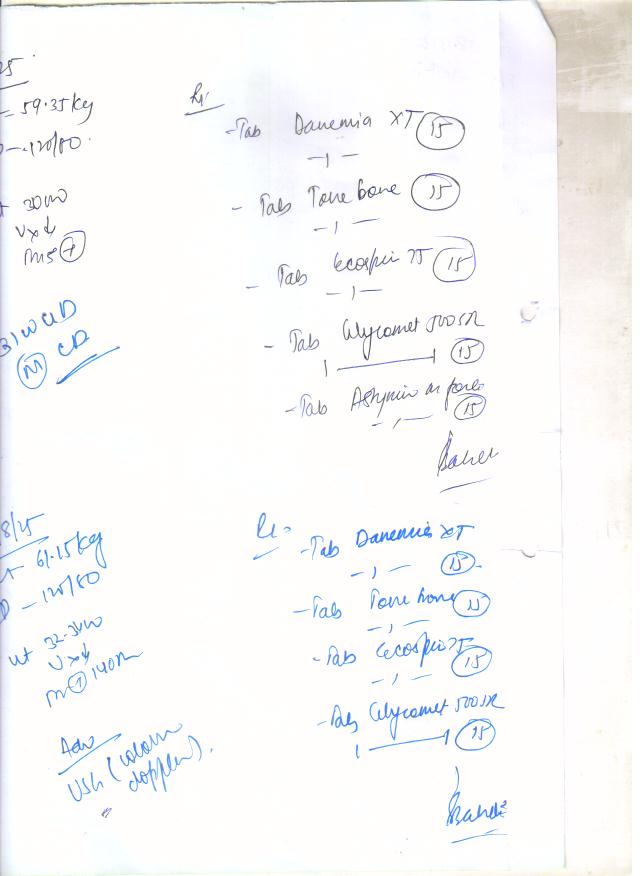 25
= 59.35 kg
- 120/80
30 w
Vx ↓
31 w
Rx
- Tab Danemia XT (15)
- 1 -
- Tab Tone bone (15)
- 1 -
- Tab Ecospin 75 (15)
- 1 -
- Tab Glycomet 500 SR
1 ——— 1 (15)
- Tab Astymin M forte
- 1 - (15)
8/25
61.15 kg
- 120/80
ut 32-34 w
Vx ↓
140 m
Adv
USG (colour
doppler).
Rx
- Tab Danemia XT
- 1 - (15)
- Tab Tone bone (15)
- 1 -
- Tab Ecospin 75
- 1 - (15)
- Tab Glycomet 500 SR
1 ——— 1 (15)